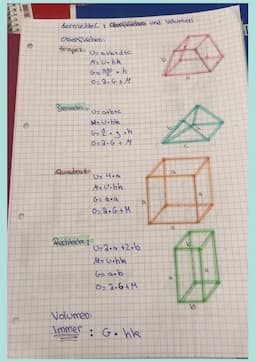 Oberflächen und Volumen
Oberflächen:
Trapez:
U=a+b+d+c
M=U·hk
O=2·G+M
Dreieck:
U=a+b+c
M=U·hk
O=2·G+M
Quadrat:
U=4·a
M=U·hk
G=a·a
O=2·G+M
Rechteck:
U=2·a+2·b
M=U·hk
G=a·b
O=2·G+M
Volumen:
Immer: G·hk